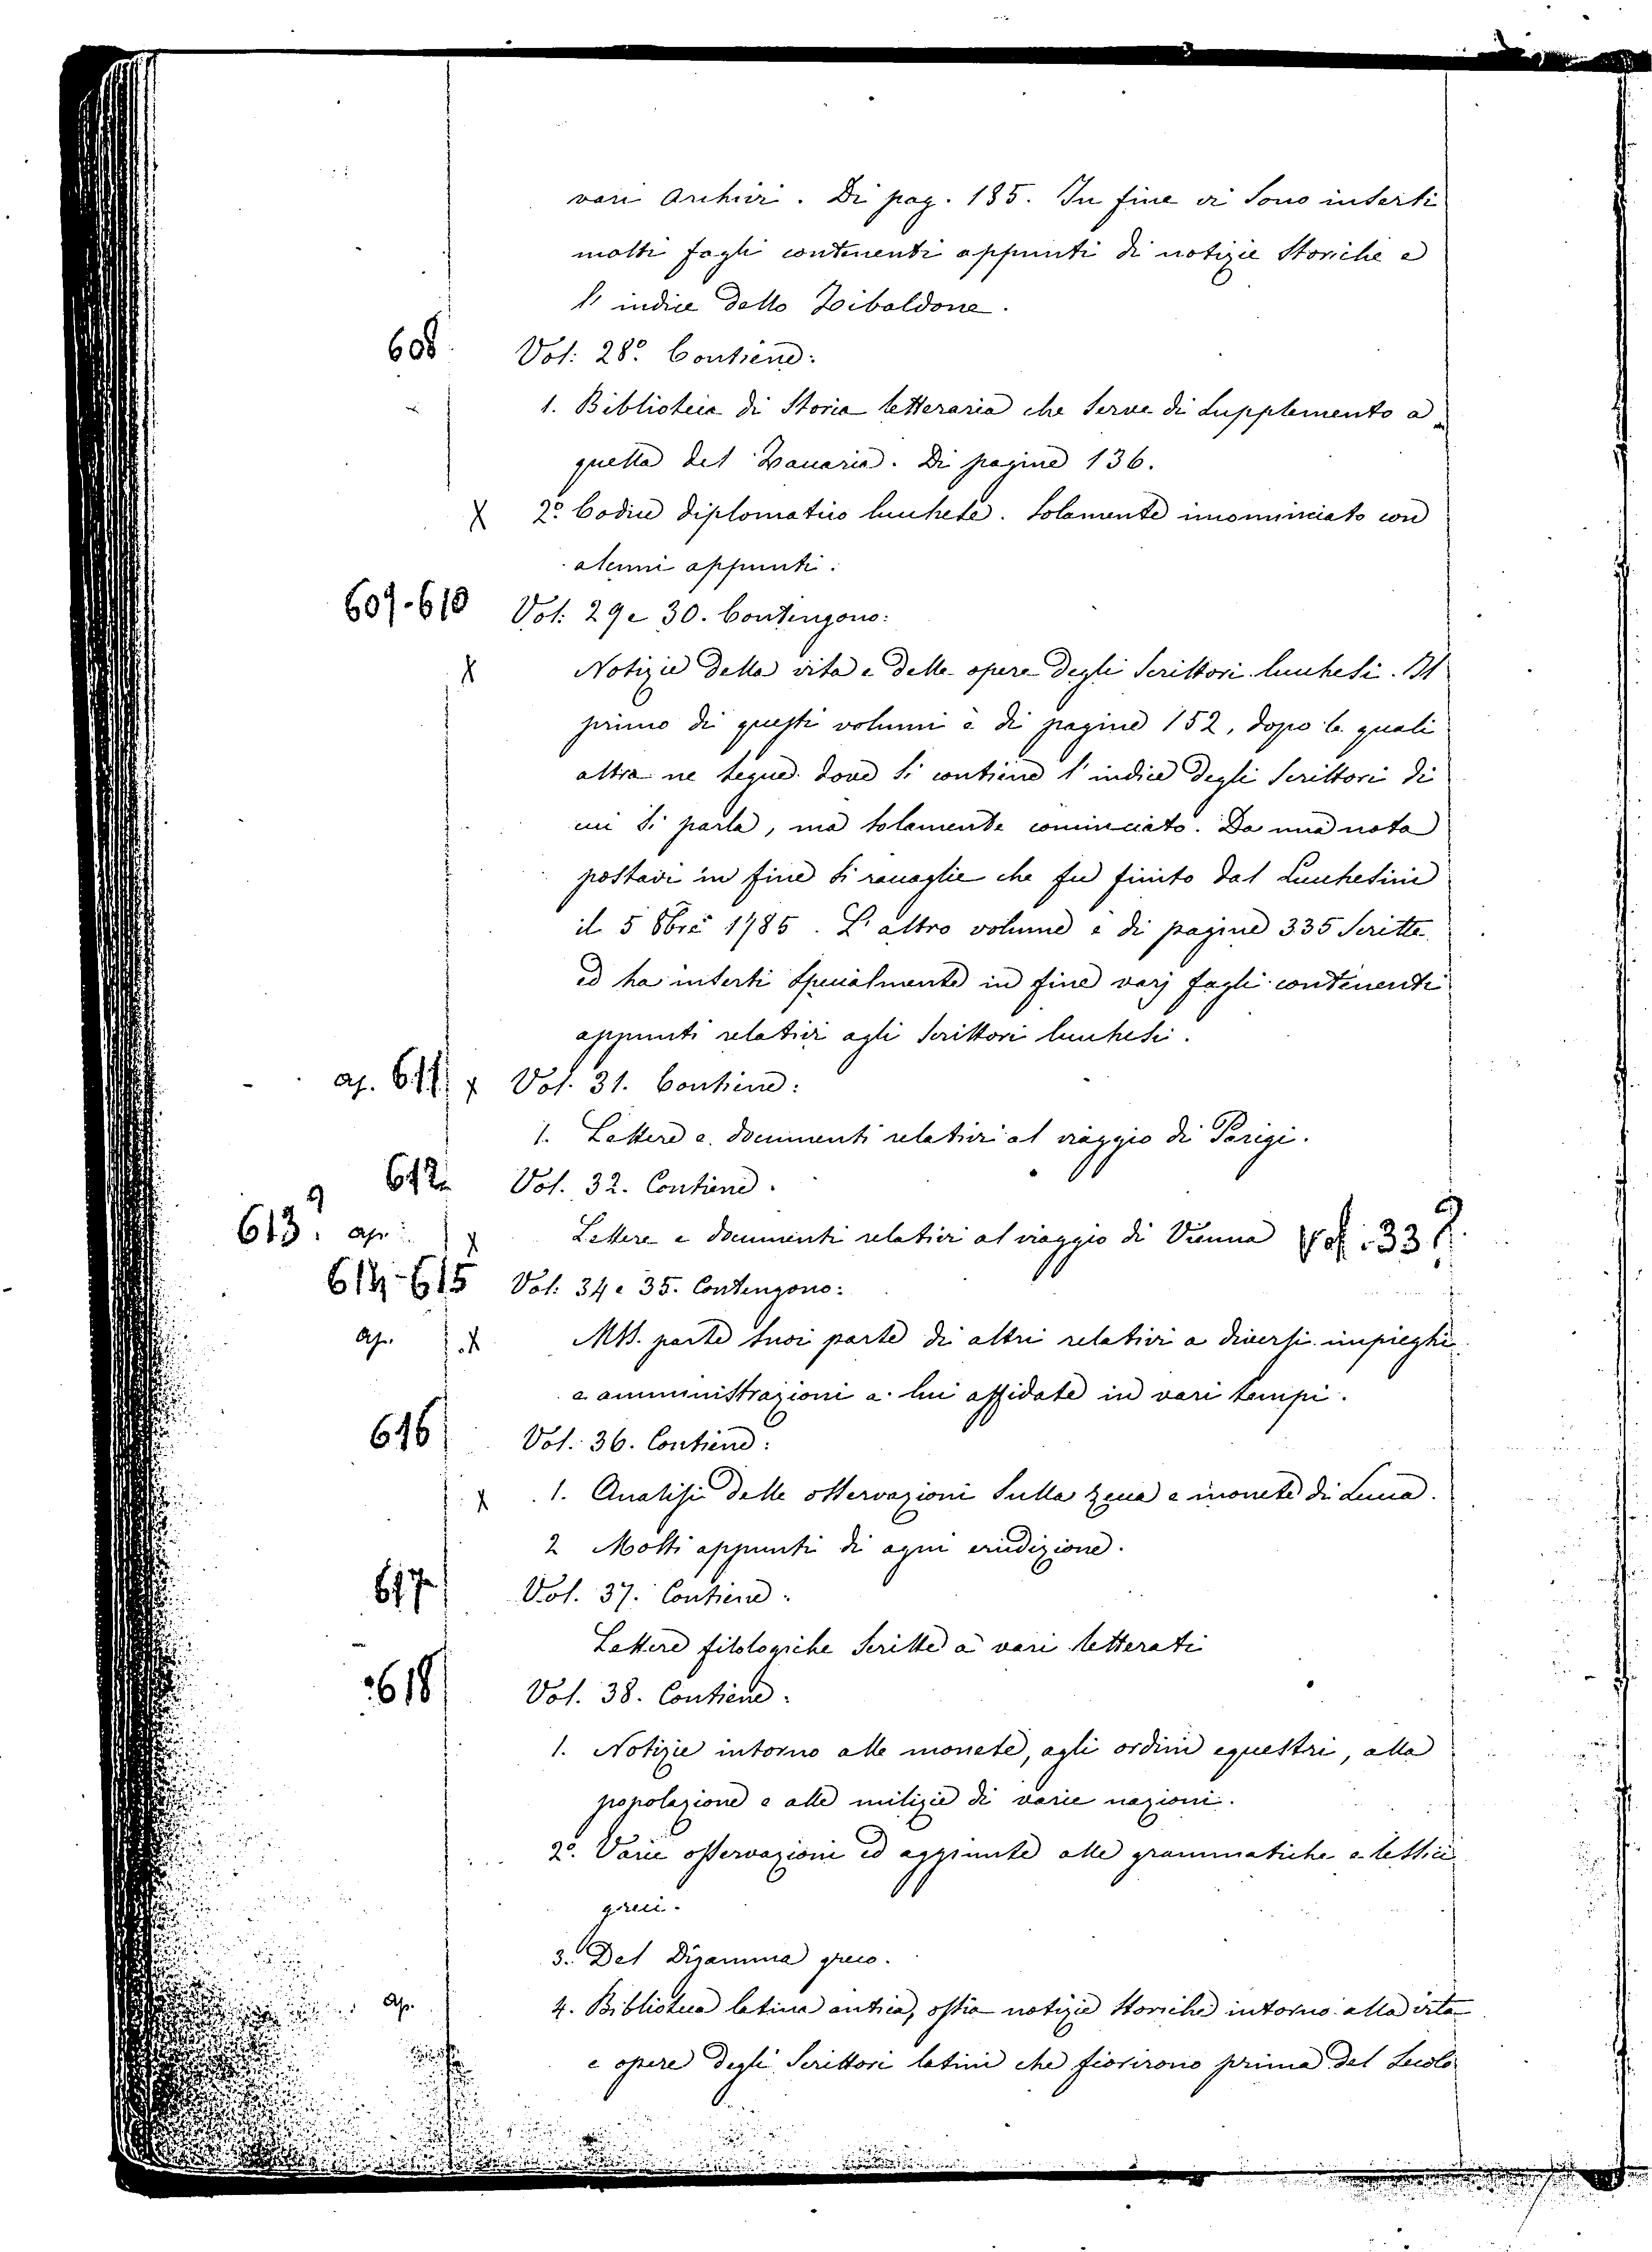 vari Archivi. Di pag. 185. In fine vi sono inserti
molti fogli contenenti appunti di notizie storiche e
l'indice dello Zibaldone.
608 Vol: 28º. Contiene:
1. Biblioteca di Storia letteraria che serve di supplemento a
quella del Zaccaria. Di pagine 136.
X 2º. Codice diplomatico lucchese. Solamente incominciato con
alcuni appunti.
609-610 Vol: 29 e 30. Contengono:
X Notizie della vita e delle opere degli Scrittori lucchesi. Il
primo di questi volumi è di pagine 152, dopo le quali
altra ne segue dove si contiene l'indice degli Scrittori di
cui si parla, ma solamente cominciato. Da una nota
postavi in fine si raccoglie che fu finito dal Lucchesini
il 5 8bre 1785. L'altro volume è di pagine 335 scritte
ed ha inserti specialmente in fine varj fogli contenenti
appunti relativi agli Scrittori lucchesi.
ap. 611 X Vol. 31. Contiene:
1. Lettere e documenti relativi al viaggio di Parigi.
612 Vol. 32. Contiene.
613? ap. X Lettere e documenti relativi al viaggio di Vienna Vol. 33?
614-615 Vol: 34 e 35. Contengono:
ap. X MSS. parte suoi parte di altri relativi a diversi impieghi
e amministrazioni a lui affidate in vari tempi.
616 Vol. 36. Contiene:
X 1. Analisi delle osservazioni sulla zecca e monete di Lucca.
2 Molti appunti di ogni erudizione.
617 Vol. 37. Contiene.
Lettere filologiche scritte a vari letterati
618 Vol. 38. Contiene.
1. Notizie intorno alle monete, agli ordini equestri, alla
popolazione e alle milizie di varie nazioni.
2º. Varie osservazioni ed aggiunte alle grammatiche e lessici
greci.
3. Del Digamma greco.
ap. 4. Biblioteca latina antica, ossia notizie storiche intorno alla vita
e opere degli Scrittori latini che fiorirono prima del Secolo